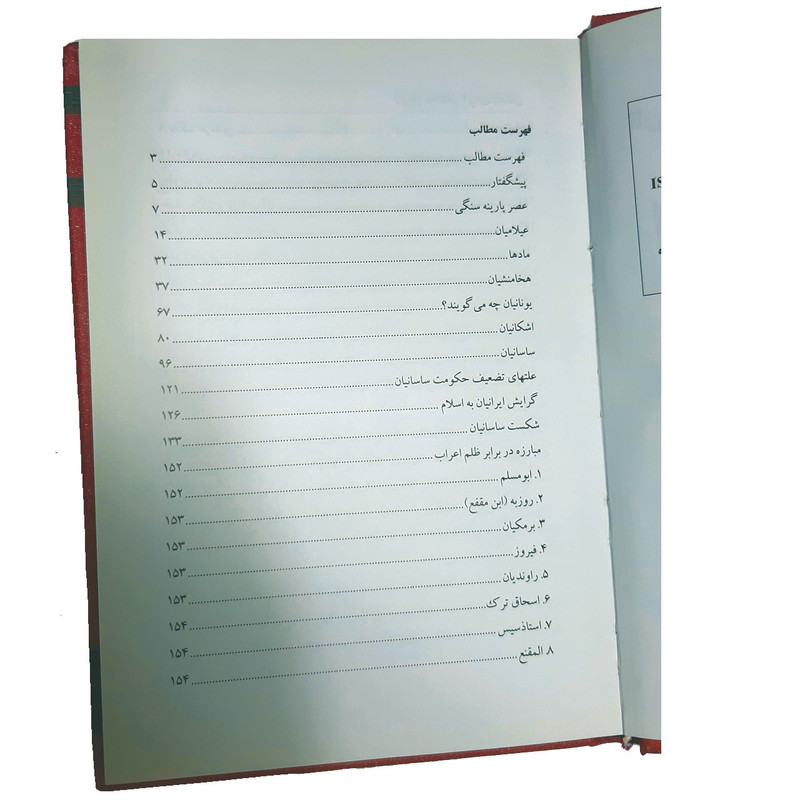 فهرست مطالب
فهرست مطالب ........ ۳
پیشگفتار ........ ۵
عصر پارینه سنگی ........ ۷
عیلامیان ........ ۱۴
مادها ........ ۳۲
هخامنشیان ........ ۳۷
یونانیان چه می‌گویند؟ ........ ۶۷
اشکانیان ........ ۸۰
ساسانیان ........ ۹۶
علتهای تضعیف حکومت ساسانیان ........ ۱۲۱
گرایش ایرانیان به اسلام ........ ۱۲۶
شکست ساسانیان ........ ۱۳۳
مبارزه در برابر ظلم اعراب ........ ۱۵۲
۱. ابومسلم ........ ۱۵۲
۲. روزبه (ابن مقفع) ........ ۱۵۳
۳. برمکیان ........ ۱۵۳
۴. فیروز ........ ۱۵۳
۵. راوندیان ........ ۱۵۳
۶. اسحاق ترک ........ ۱۵۴
۷. استاذسیس ........ ۱۵۴
۸. المقنع ........ ۱۵۴